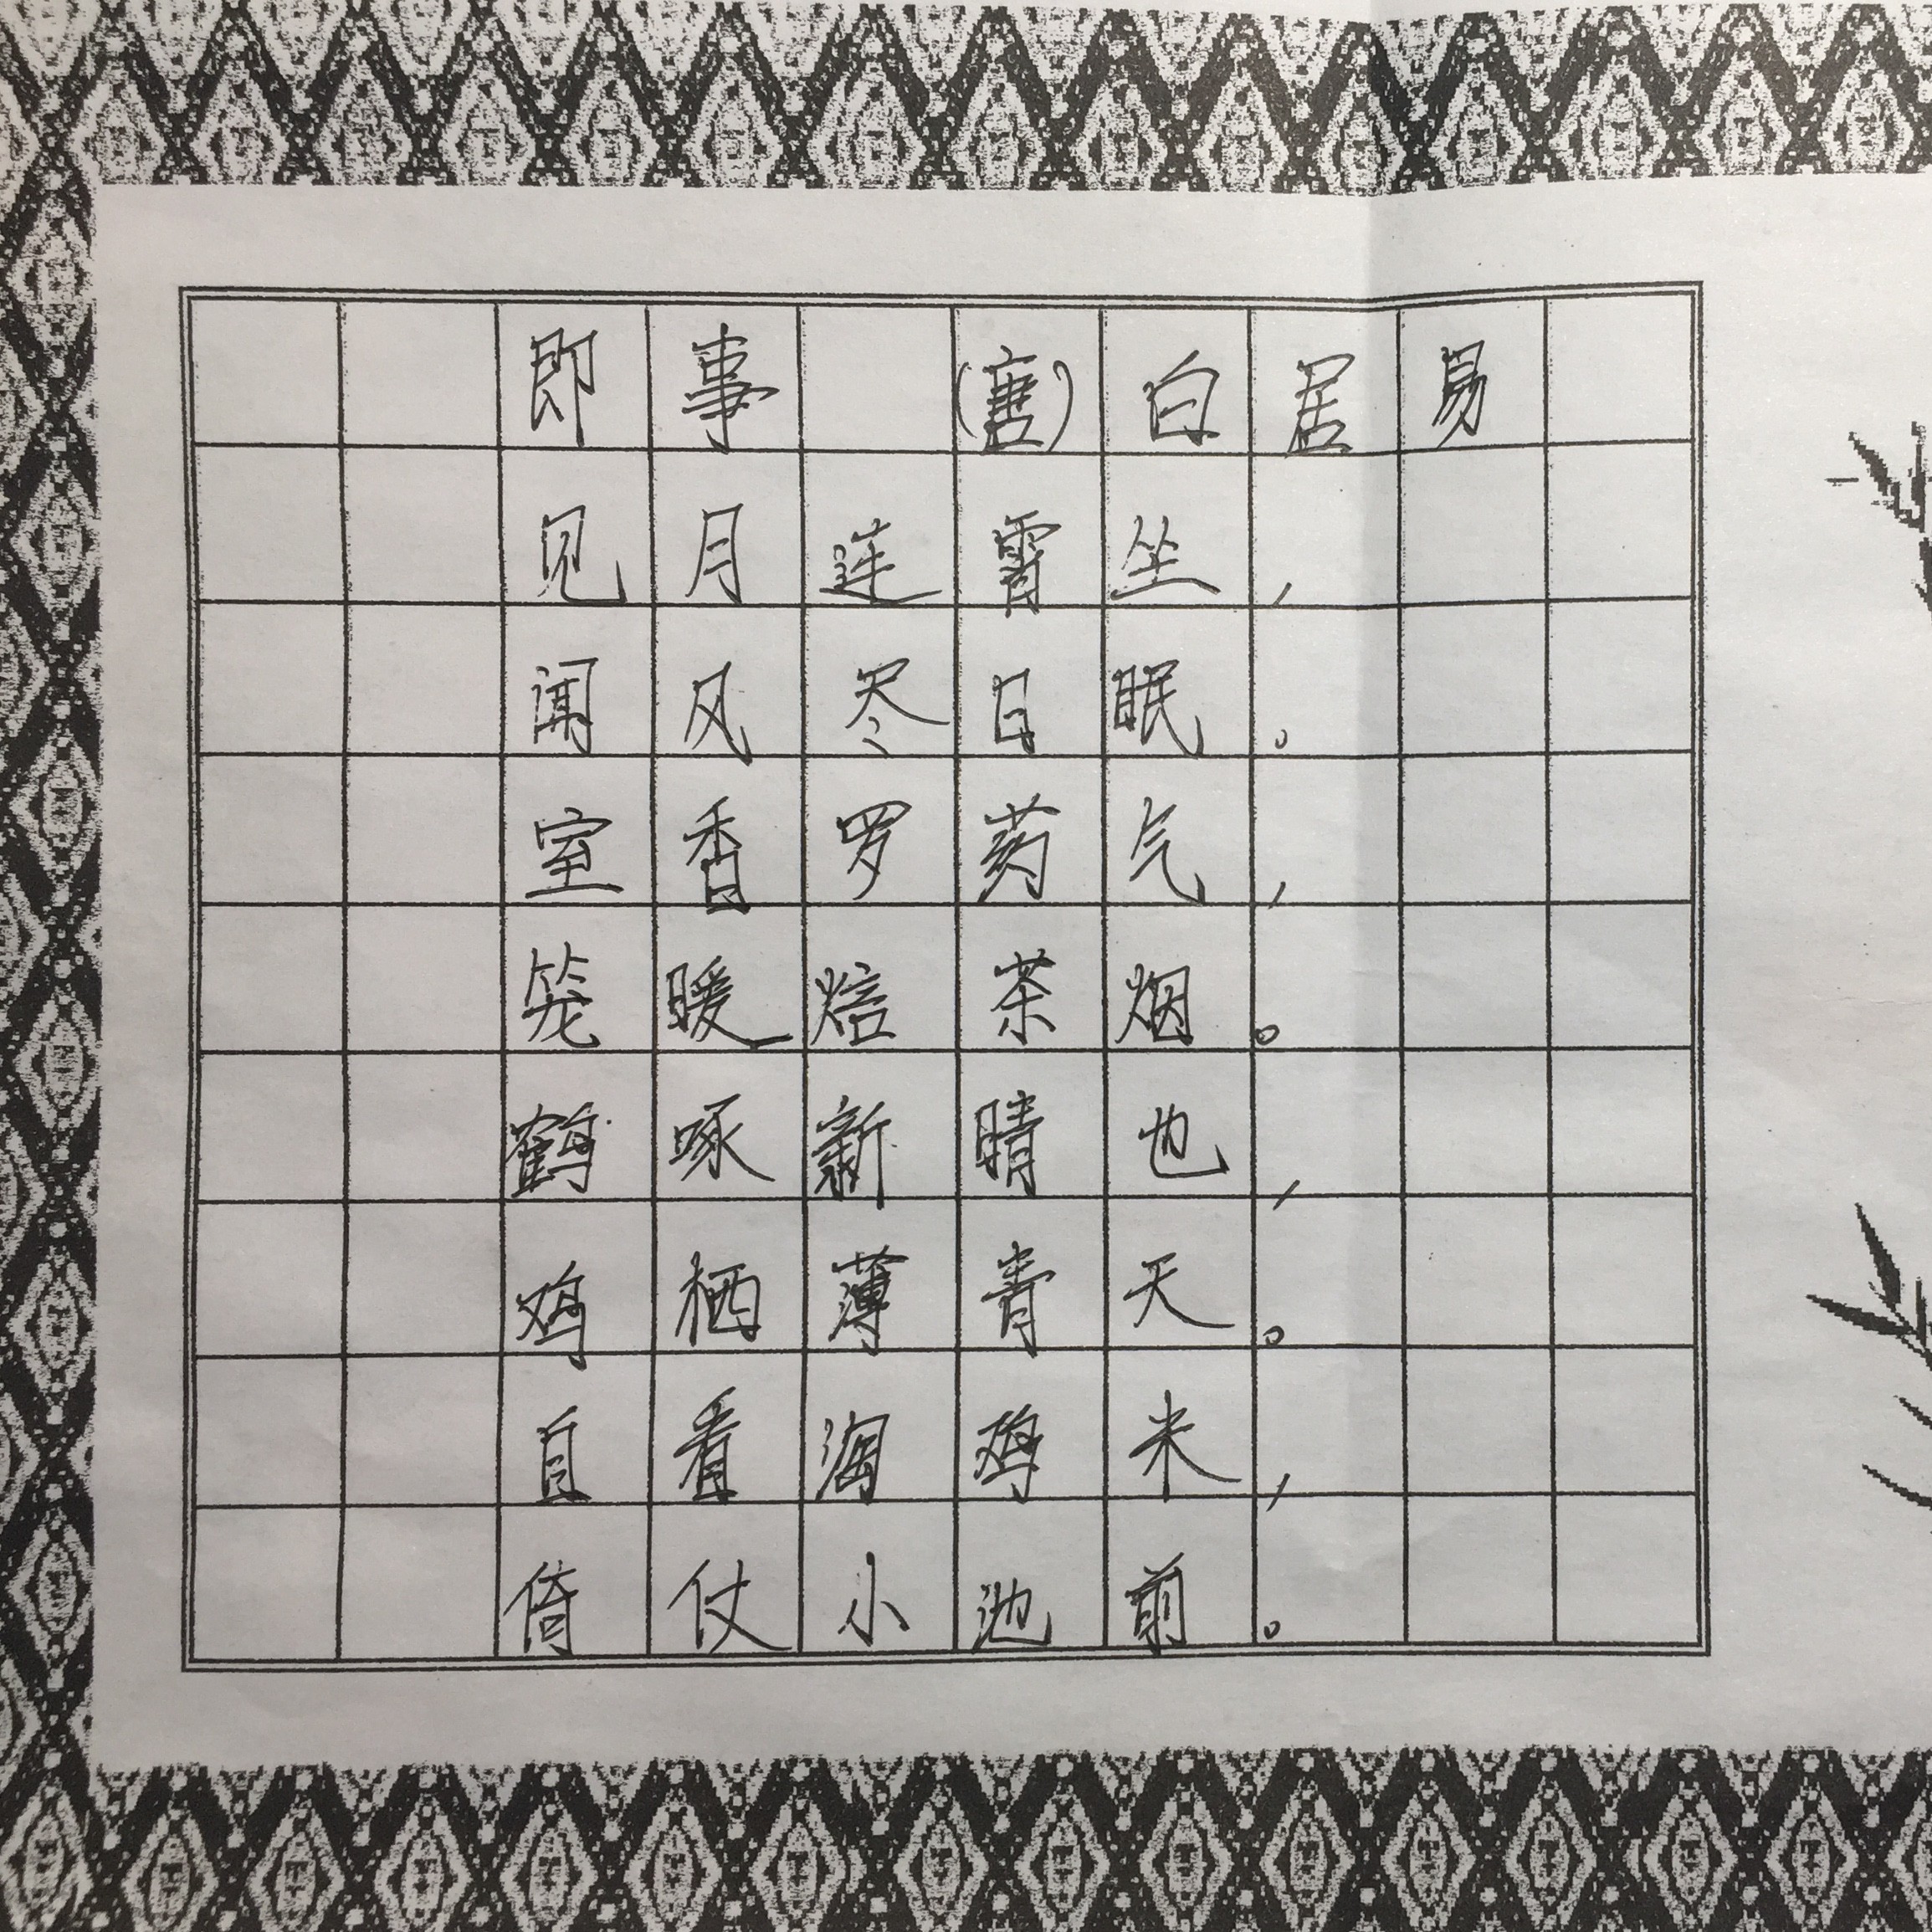 即事 (唐)白居易
见月连霄坐,
闻风尽日眠。
室香罗药气,
笼暖焙茶烟。
鹤啄新晴也,
鸡栖薄青天。
自看淘鸡米,
倚仗小池前。